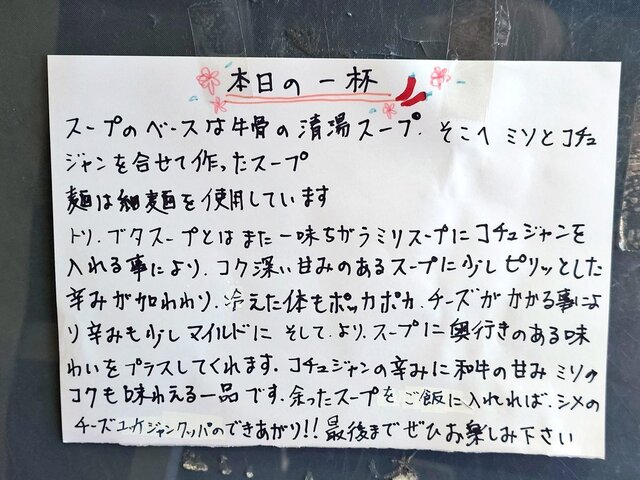 本日の一杯
スープのベースは牛骨の清湯スープ. そこへ ミソとコチュ
ジャンを合せて作ったスープ
麺は細麺を使用しています
トリ. ブタスープとはまた一味ちがうミソスープにコチュジャンを
入れる事により. コク深い甘みのあるスープに少しピリッとした
辛みが加わわり. 冷えた体もポッカポカ. チーズがかかる事によ
り辛みも少しマイルドに そして. より. スープに奥行きのある味
わいをプラスしてくれます. コチュジャンの辛みに和牛の甘み ミソの
コクも味わえる一品です. 余ったスープをご飯に入れれば. シメの
チーズユッケジャンクッパのできあがり!! 最後までぜひお楽しみ下さい